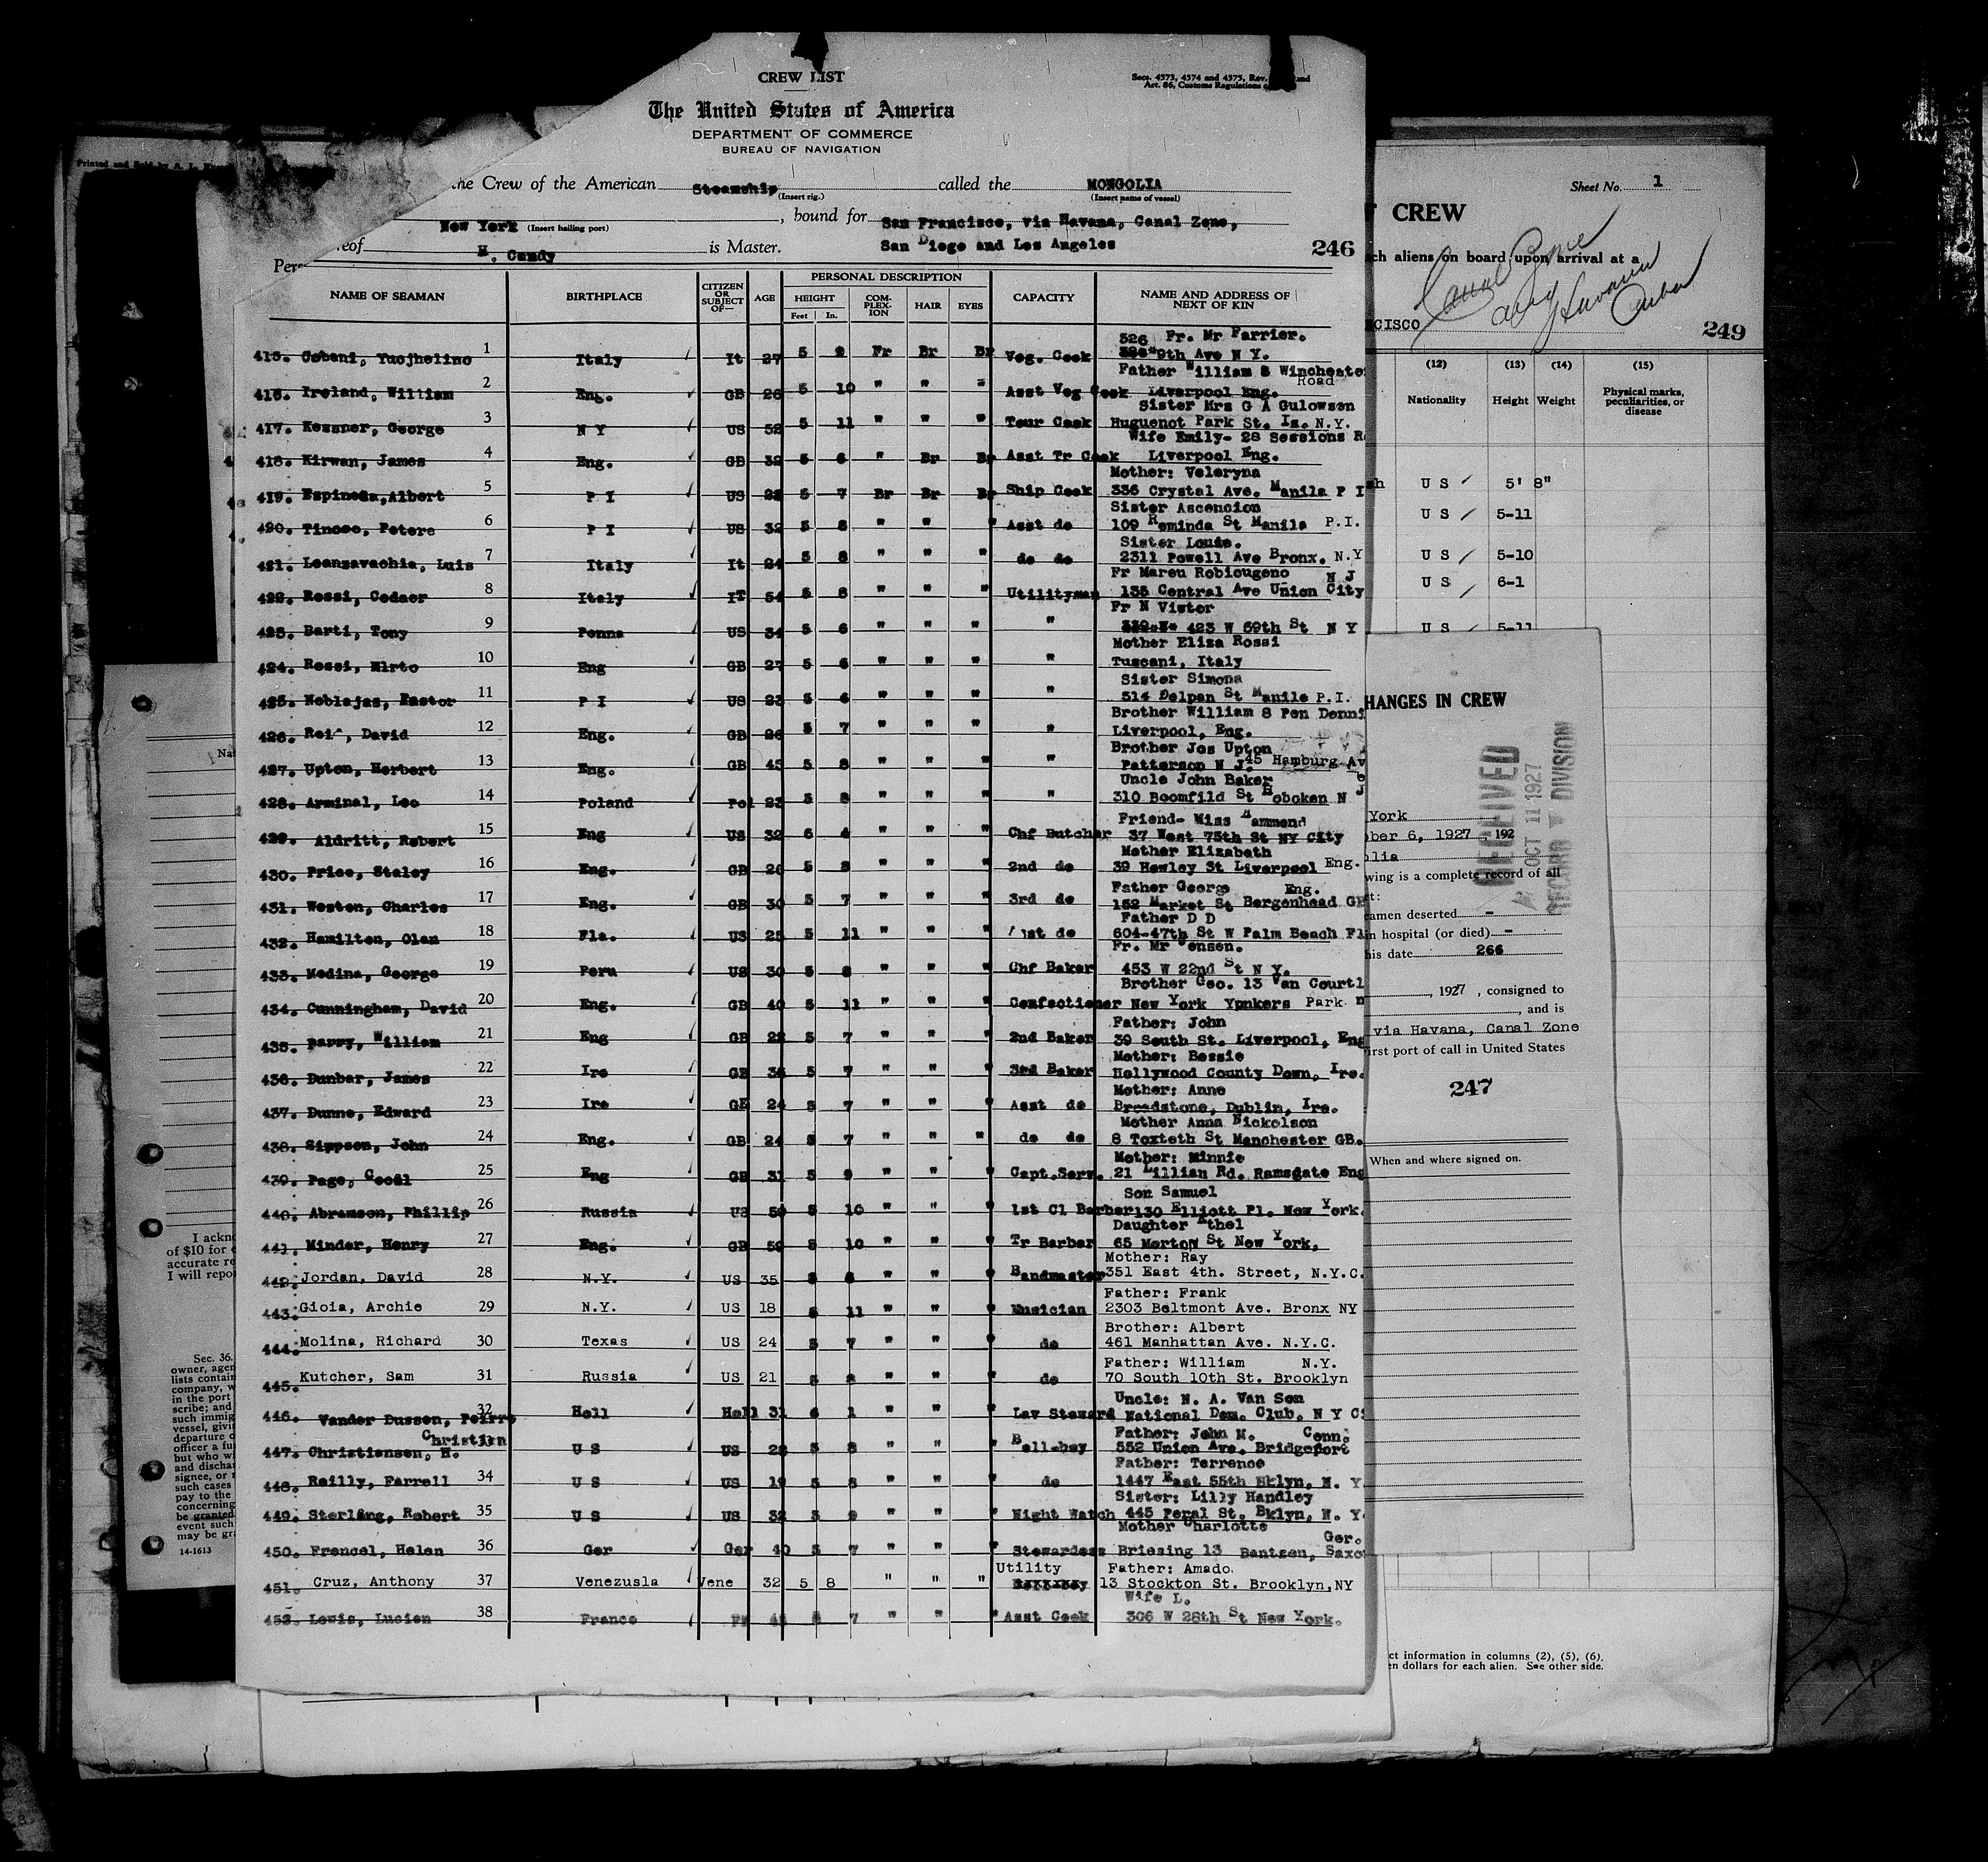 CREW LIST
Secs. 4573, 4574 and 4575, Rev. and
Art. 86, Customs Regulations
The United States of America
DEPARTMENT OF COMMERCE
BUREAU OF NAVIGATION
Printed and Sold by A. L.
the Crew of the American Steamship called the MONGOLIA
(Insert rig.) (Insert name of vessel)
New York (Insert hailing port) , bound for San Francisco, via Havana, Canal Zone,
San Diego and Los Angeles
reof H. Candy is Master. 246
NAME OF SEAMAN BIRTHPLACE CITIZEN OR SUBJECT OF— AGE PERSONAL DESCRIPTION CAPACITY NAME AND ADDRESS OF NEXT OF KIN
HEIGHT COM-PLEX-ION HAIR EYES
Feet In.
526 Fr. Mr Farrier.
415. 1 Italy It 27 5 9 Fr Br Br Veg. Cook 9th Ave N Y.
Father William 8 Wincheste
Road
416. Ireland, William 2 Eng. GB 26 5 10 " " " Asst Veg Cook Liverpool Eng.
Sister Mrs G A Gulowsen
417. Kessner, George 3 N Y US 52 5 11 " " " Tour Cook Huguenot Park St. Is. N.Y.
Wife Emily- 28 Sessions R
418. Kirwan, James 4 Eng. GB 32 5 6 " Br Br Asst Tr Cook Liverpool Eng.
Mother: Veleryna
419. Espineda,Albert 5 P I US 28 5 7 Br Br Br Ship Cook 336 Crystal Ave. Manila P I
Sister Ascencion
420. Tinoso, Petere 6 P I US 32 5 8 " " " Asst do 109 Reminda St Manila P.I.
Sister Louie.
421. Leanzavachia, Luis 7 Italy It 24 5 8 " " " do do 2311 Powell Ave Bronx. N.Y
Fr Mareu Robiougeno N J
422. Rossi, Cednor 8 Italy IT 54 5 8 " " " Utilityman 135 Central Ave Union City
Fr N Vistor
423. Barti, Tony 9 Penna US 34 5 6 " " " " 423 W 59th St N Y
Mother Eliza Rossi
424. Rossi, Mirto 10 Eng GB 27 5 6 " " " " Tuscani, Italy
Sister Simona
425. Noblejas, Pastor 11 P I US 23 5 6 " " " " 514 Delpan St Manila P.I.
Brother William 8 Pen Denni
426. David 12 Eng. GB 26 5 7 " " " " Liverpool, Eng.
Brother Jos Upton
427. Upton, Herbert 13 Eng. GB 45 5 8 " " " " Patterson N J. 45 Hamburg Av
Uncle John Baker e
428. Arminal, Leo 14 Poland Pol 23 5 8 " " " " 310 Boomfild St Hoboken N J
Friend- Miss Hammond
429. Aldritt, Robert 15 Eng US 32 6 4 " " " Chf Butcher 37 West 75th St NY City
Mother Elizabeth
430. Price, Staley 16 Eng. GB 26 5 8 " " " 2nd do 39 Hawley St Liverpool Eng.
Father George Eng.
431. Weston, Charles 17 Eng. GB 30 5 7 " " " 3rd do 152 Market St Bergenhead GB
Father D D
432. Hamilton, Olan 18 Fla. US 25 5 11 " " " 1st do 604-47th St W Palm Beach Fl
Fr. Mr Jensen.
433. Medina, George 19 Peru US 30 5 8 " " " Chf Baker 453 W 22nd St N Y.
Brother Geo. 13 Van Courtl
434. Cunningham, David 20 Eng. GB 40 5 11 " " " Confectioner New York Yonkers Park
Father: John
435. Barry, William 21 Eng GB 22 5 7 " " " 2nd Baker 39 South St. Liverpool, Eng
Mother: Bessie
436. Dunbar, James 22 Ire GB 36 5 7 " " " 3rd Baker Hollywood County Down, Ire.
Mother: Anne
437. Dunne, Edward 23 Ire GB 24 5 7 " " " Asst do Broadstone, Dublin, Ire.
Mother Anna Nickolson
438. Simpson, John 24 Eng. GB 24 5 7 " " " do do 8 Toxteth St Manchester GB.
Mother: Minnie
439. Page, Cecil 25 Eng GB 31 5 9 " " " Capt.Serv. 21 Lillian Rd. Ramsgate Eng
Son Samuel
440. Abramson, Phillip 26 Russia US 50 5 10 " " " 1st Cl Barber 130 Elliott Pl. New York.
Daughter Ethel
441. Minder, Henry 27 Eng. GB 59 5 10 " " " Tr Barber 65 Morton St New York,
Mother: Ray
442. Jordan, David 28 N.Y. US 35 5 8 " " " Bandmaster 351 East 4th. Street, N.Y.C.
Father: Frank
443. Gioia, Archie 29 N.Y. US 18 5 11 " " " Musician 2303 Beltmont Ave. Bronx NY
Brother: Albert
444. Molina, Richard 30 Texas US 24 5 7 " " " do 461 Manhattan Ave. N.Y.C.
Father: William N.Y.
445. Kutcher, Sam 31 Russia US 21 5 8 " " " do 70 South 10th St. Brooklyn
Uncle: N. A. Van Son
446. Vander Dussen, Peirre 32 Holl Holl 31 6 1 " " " Lav Steward National Dem. Club, N Y C
Christian Father: John M. Conn.
447. Christiansen, H. 33 U S US 28 5 8 " " " Bell-boy 552 Union Ave. Bridgeport
Father: Terrence
448. Reilly, Farrell 34 U S US 19 5 8 " " " do 1447 East 55th Bklyn, N. Y
Sister: Lilly Handley
449. Sterling, Robert 35 U S US 32 5 9 " " " Night Watch 445 Peral St. Bklyn, N. Y.
Mother Charlotte Ger.
450. Frencel, Helen 36 Ger Ger 40 5 7 " " " Stewardess Briesing 13 Bantzen, Saxo
Utility Father: Amado.
451. Cruz, Anthony 37 Venezusla Vene 32 5 8 " " " 13 Stockton St. Brooklyn,NY
Wife L.
452. Lewis, Lucien 38 France Fr 5 7 " " " Asst Cook 306 W 28th St New York.
Sheet No. 1
CREW
ch aliens on board upon arrival at a
Canal Zone
and Havana
Cuba
CISCO
249
(12) (13) (14) (15)
Nationality Height Weight Physical marks, peculiarities, or disease
U S 5' 8"
U S 5-11
U S 5-10
U S 6-1
U S 5-11
HANGES IN CREW
RECEIVED
OCT 11 1927
RECORD DIVISION
York
ber 6, 1927 , 192
olia
wing is a complete record of all
t:
eamen deserted -
in hospital (or died) -
his date 266
, 1927 , consigned to
, and is
via Havana, Canal Zone
irst port of call in United States
247
When and where signed on.
ct information in columns (2), (5), (6).
en dollars for each alien. See other side.
Na
I ackn
of $10 for
accurate re
I will repo
Sec. 36.
owner, agen
lists contain
company, w
in the port
scribe; and
such immig
vessel, givi
departure o
officer a fu
but who w
and dischar
signee, or
such cases
pay to the
concerning
be granted
event such
may be gr
14-1613